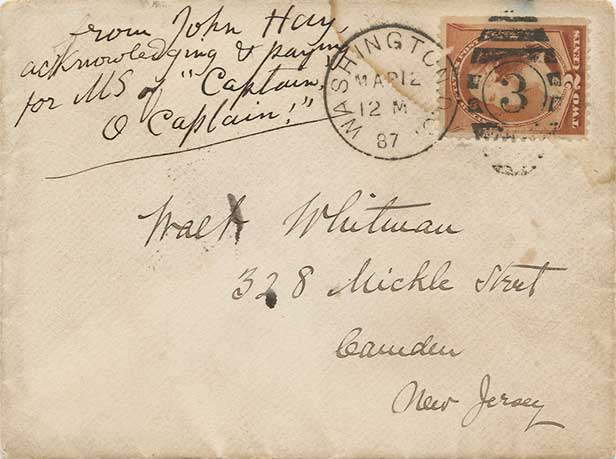 from John Hay
acknowledging & paying
for MS of "Captain,
O Captain!"
WASHINGTON, D.C.
MAR 12
12 M
87
3
TWO 2 CENTS
Walt Whitman
328 Mickle Street
Camden
New Jersey